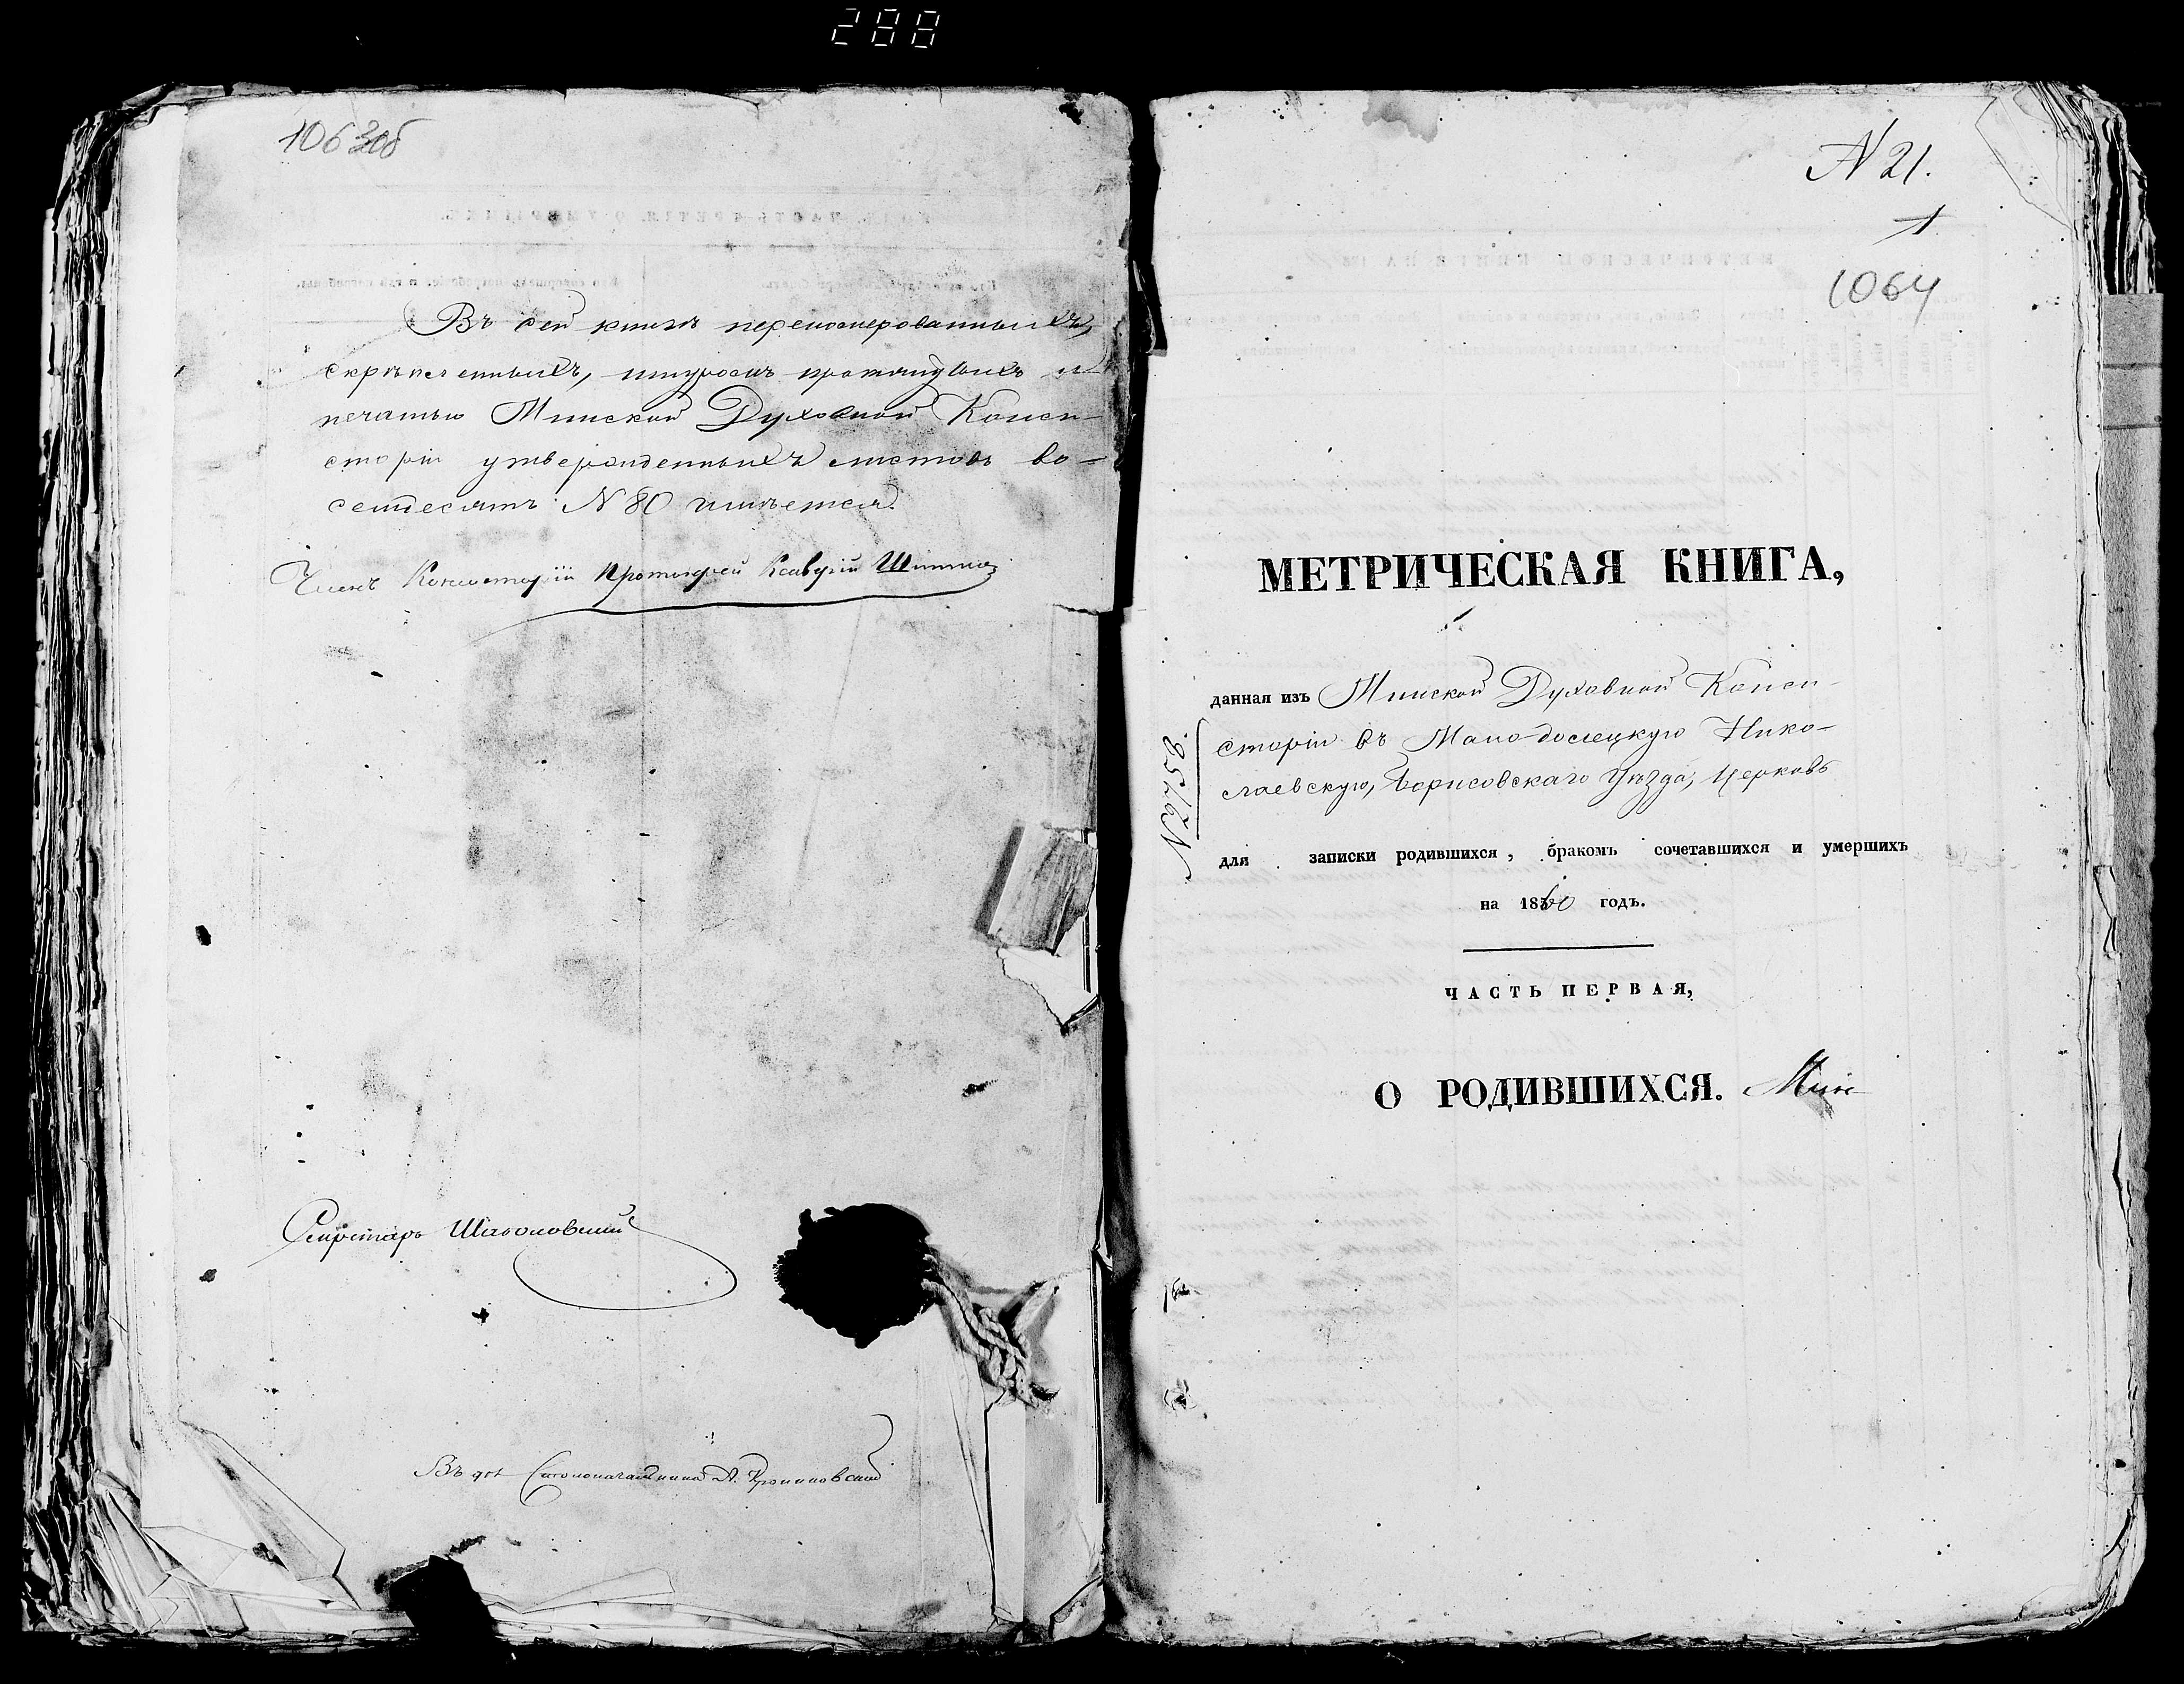 288
1063об
Въ сей книгѣ перенумерованныхъ,
скрѣпленныхъ, шнуромъ протянутыхъ и
печатью Минской Духовной Конси-
сторіи утвержденныхъ листовъ во-
семдесятъ N 80 имѣется.
Членъ Консисторіи Протоіерей
Секретарь
Въ дол. Столоначальника А.
N 21.
1
1064
МЕТРИЧЕСКАЯ КНИГА,
данная изъ Минской Духовной Конси-
сторіи въ Мало-долецкую Нико-
лаевскую, Борисовскаго уѣзда, Церковь
для записки родившихся, бракомъ сочетавшихся и умершихъ
на 1860 годъ.
ЧАСТЬ ПЕРВАЯ,
О РОДИВШИХСЯ. Мин-